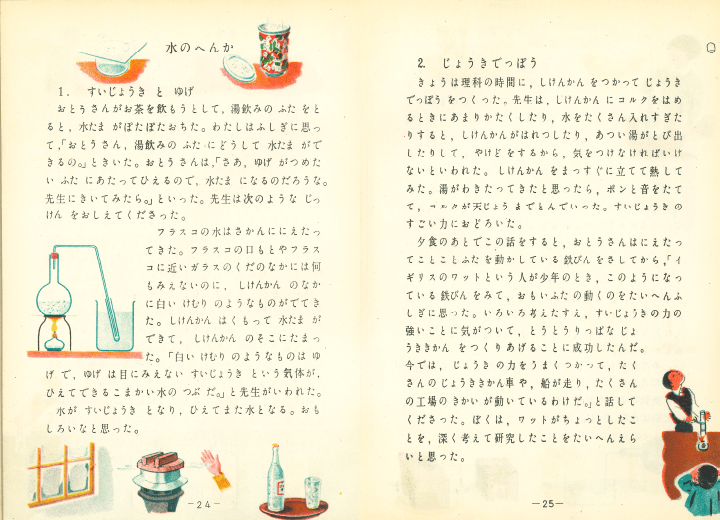 水のへんか
1. すいじょうき と ゆげ
おとうさんがお茶を飲もうとして，湯飲みの ふた をと
ると，水たま がぽたぽたおちた。わたしはふしぎに思っ
て，「おとうさん，湯飲みの ふた にどうして 水たま がで
きるの。」ときいた。おとうさんは，「さあ，ゆげ がつめた
い ふた にあたってひえるので，水たま になるのだろうな。
先生にきいてみたら。」といった。先生は次のような じっ
けん をおしえてくださった。
フラスコの水はさかんににえたっ
てきた。フラスコの口もとやフラス
コに近いガラスのくだのなかには何
もみえないのに， しけんかん のなか
に白い けむり のようなものがでてき
た。しけんかん はくもって 水たま が
できて， しけんかん のそこにたまっ
た。「白い けむり のようなものは ゆ
げ で，ゆげ は目にみえない すいじょうき という気体が，
ひえてできるこまかい水の つぶ だ。」と先生がいわれた。
水が すいじょうき となり，ひえてまた水となる。おも
しろいなと思った。
—24—
2. じょうきでっぽう
きょうは理科の時間に，しけんかん をつかって じょうき
でっぽう をつくった。先生は，しけんかん にコルクをはめ
るときにあまりかたくしたり，水をたくさん入れすぎた
りすると，しけんかんがはれつしたり，あつい湯がとび出
したりして， やけど をするから，気をつけなければいけ
ないといわれた。 しけんかん をまっすぐに立てて熱して
みた。湯がわきたってきたと思ったら，ポンと音をたて
て，コルクが天じょう までとんでいった。すいじょうき の
すごい力におどろいた。
夕食のあとでこの話をすると，おとうさんはにえたっ
てことことふたを動かしている 鉄びん をさしてから，「イ
ギリスのワットという人が少年のとき，このようになっ
ている 鉄びん をみて，おもいふた の動くのをたいへんふ
しぎに思った。いろいろ考えたすえ，すいじょうき の力の
強いことに気がついて，とうとうりっぱな じょ
うききかん をつくりあげることに成功したんだ。
今では，じょうき の力をうまくつかって，たく
さんのじょうききかん車 や，船が走り，たくさん
の工場の きかい が動いているわけだ。」と話して
くださった。ぼくは，ワットがちょっとしたこ
とを，深く考えて研究したことをたいへんえら
いと思った。
—25—